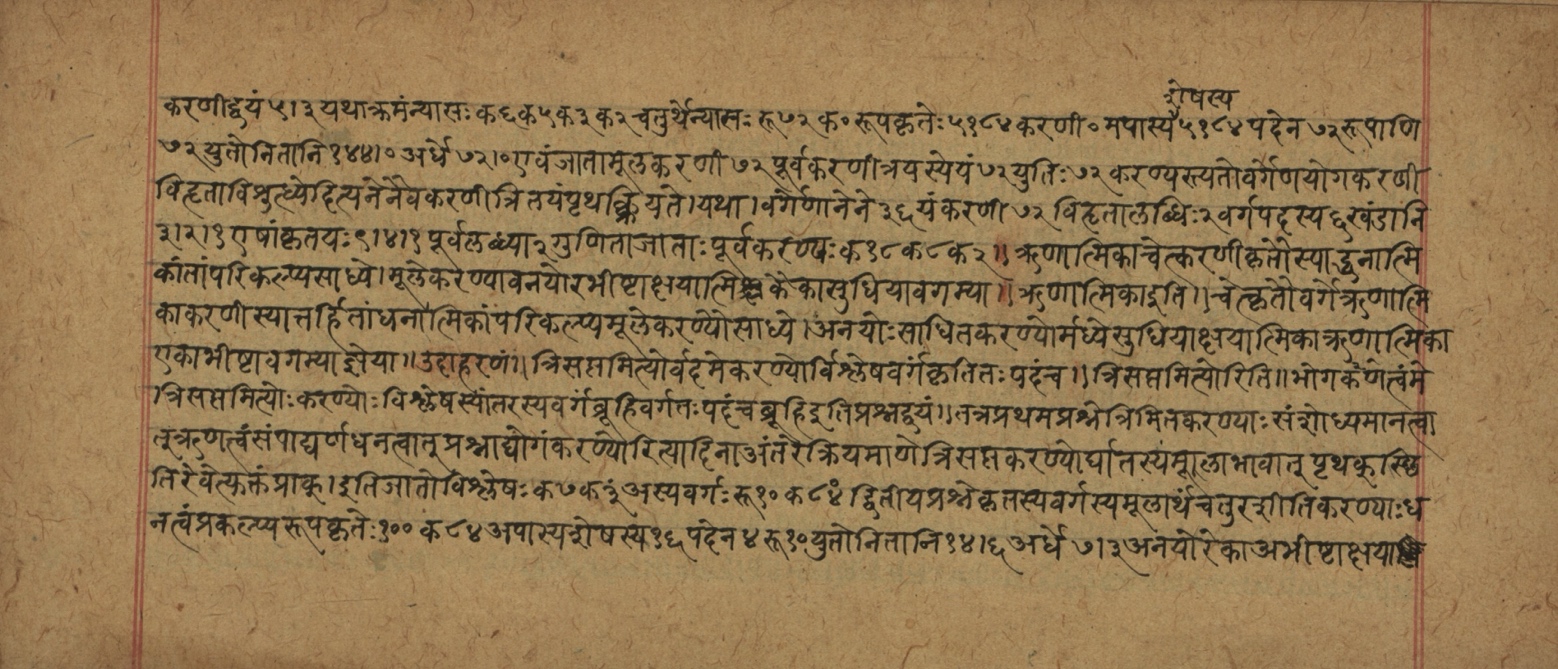 शेषस्य
करणीद्वयं ५।३ यथाक्रमंन्यासः क ६ क ५ क ३ क २ चतुर्थेन्यासः रू ७२ क ० रूपकृतेः ५१८४ करणी ० मपास्य ५१८४ पदेन ७२ रूपाणि
७२ युतोनितानि १४४।० अर्धे ७२।० एवंजातामूलकरणी ७२ पूर्वकरणीत्रयस्येयं ७२ युतिः ७२ करण्यस्त्यतोवर्गेणयोगकरणी
विहृताविशुध्येदित्यनेनैवकरणीत्रितयंपृथक्क्रियते। यथा। वर्गेणानेने ३६ यंकरणी ७२ विहृतालब्धिः २ वर्गपदस्य ६ खंडानि
३।२।१ एषांकृतयः ९।४।१ पूर्वलब्ध्या २ गुणिताजाताः पूर्वकरण्यः क १८ क ८ क २॥ ऋणात्मिकाचेत्करणीकृतौस्याद्धनात्मि
कांतांपरिकल्प्यसाध्ये। मूलेकरण्यावनयोरभीष्टाक्षयात्मिकैकासुधियावगम्या॥ ऋणात्मिकाइति॥ चेत्कृतौवर्गेऋणात्मि
काकरणीस्यात्तर्हितांधनात्मिकांपरिकल्प्यमूलेकरण्यौसाध्ये। अनयोःसाधितकरण्योर्मध्येसुधियाक्षयात्मिकाऋणात्मिका
एकाभीष्टावगम्याज्ञेया॥ उदाहरणं॥ त्रिसप्तमित्योर्वदमेकरण्योर्विश्लेषवर्गंकृतितःपदंच॥ त्रिसप्तमित्योरिति॥ भोगकणेत्वंमे
त्रिसप्तमित्योःकरण्योःविश्लेषस्यांतरस्यवर्गंब्रूहिवर्गतःपदंचब्रूहिइतिप्रश्नद्वयं॥ तत्रप्रथमप्रश्नेत्रिमितकरण्याःसंशोध्यमानत्वा
त्ऋणत्वंसंपाद्यर्णधनत्वात्प्रश्नाद्योगंकरण्योरित्यादिनाअंतरेक्रियमाणेत्रिसप्तकरण्योर्घातस्यमूलाभावात् पृथक्स्थि
तिरेवेत्युक्तंप्राक्। इतिजातोविश्लेषः क ७ क ३ं अस्यवर्गः रू १० क ८४ं द्वितीयप्रश्नेकृतस्यवर्गस्यमूलार्थंचतुरशीतिकरण्याःध
नत्वंप्रकल्प्यरूपकृतेः १०० क ८४ अपास्यशेषस्य १६ पदेन ४ रू १० युतोनितानि १४।६ अर्धे ७।३ अनयोरेकाअभीष्टाक्षयात्मि